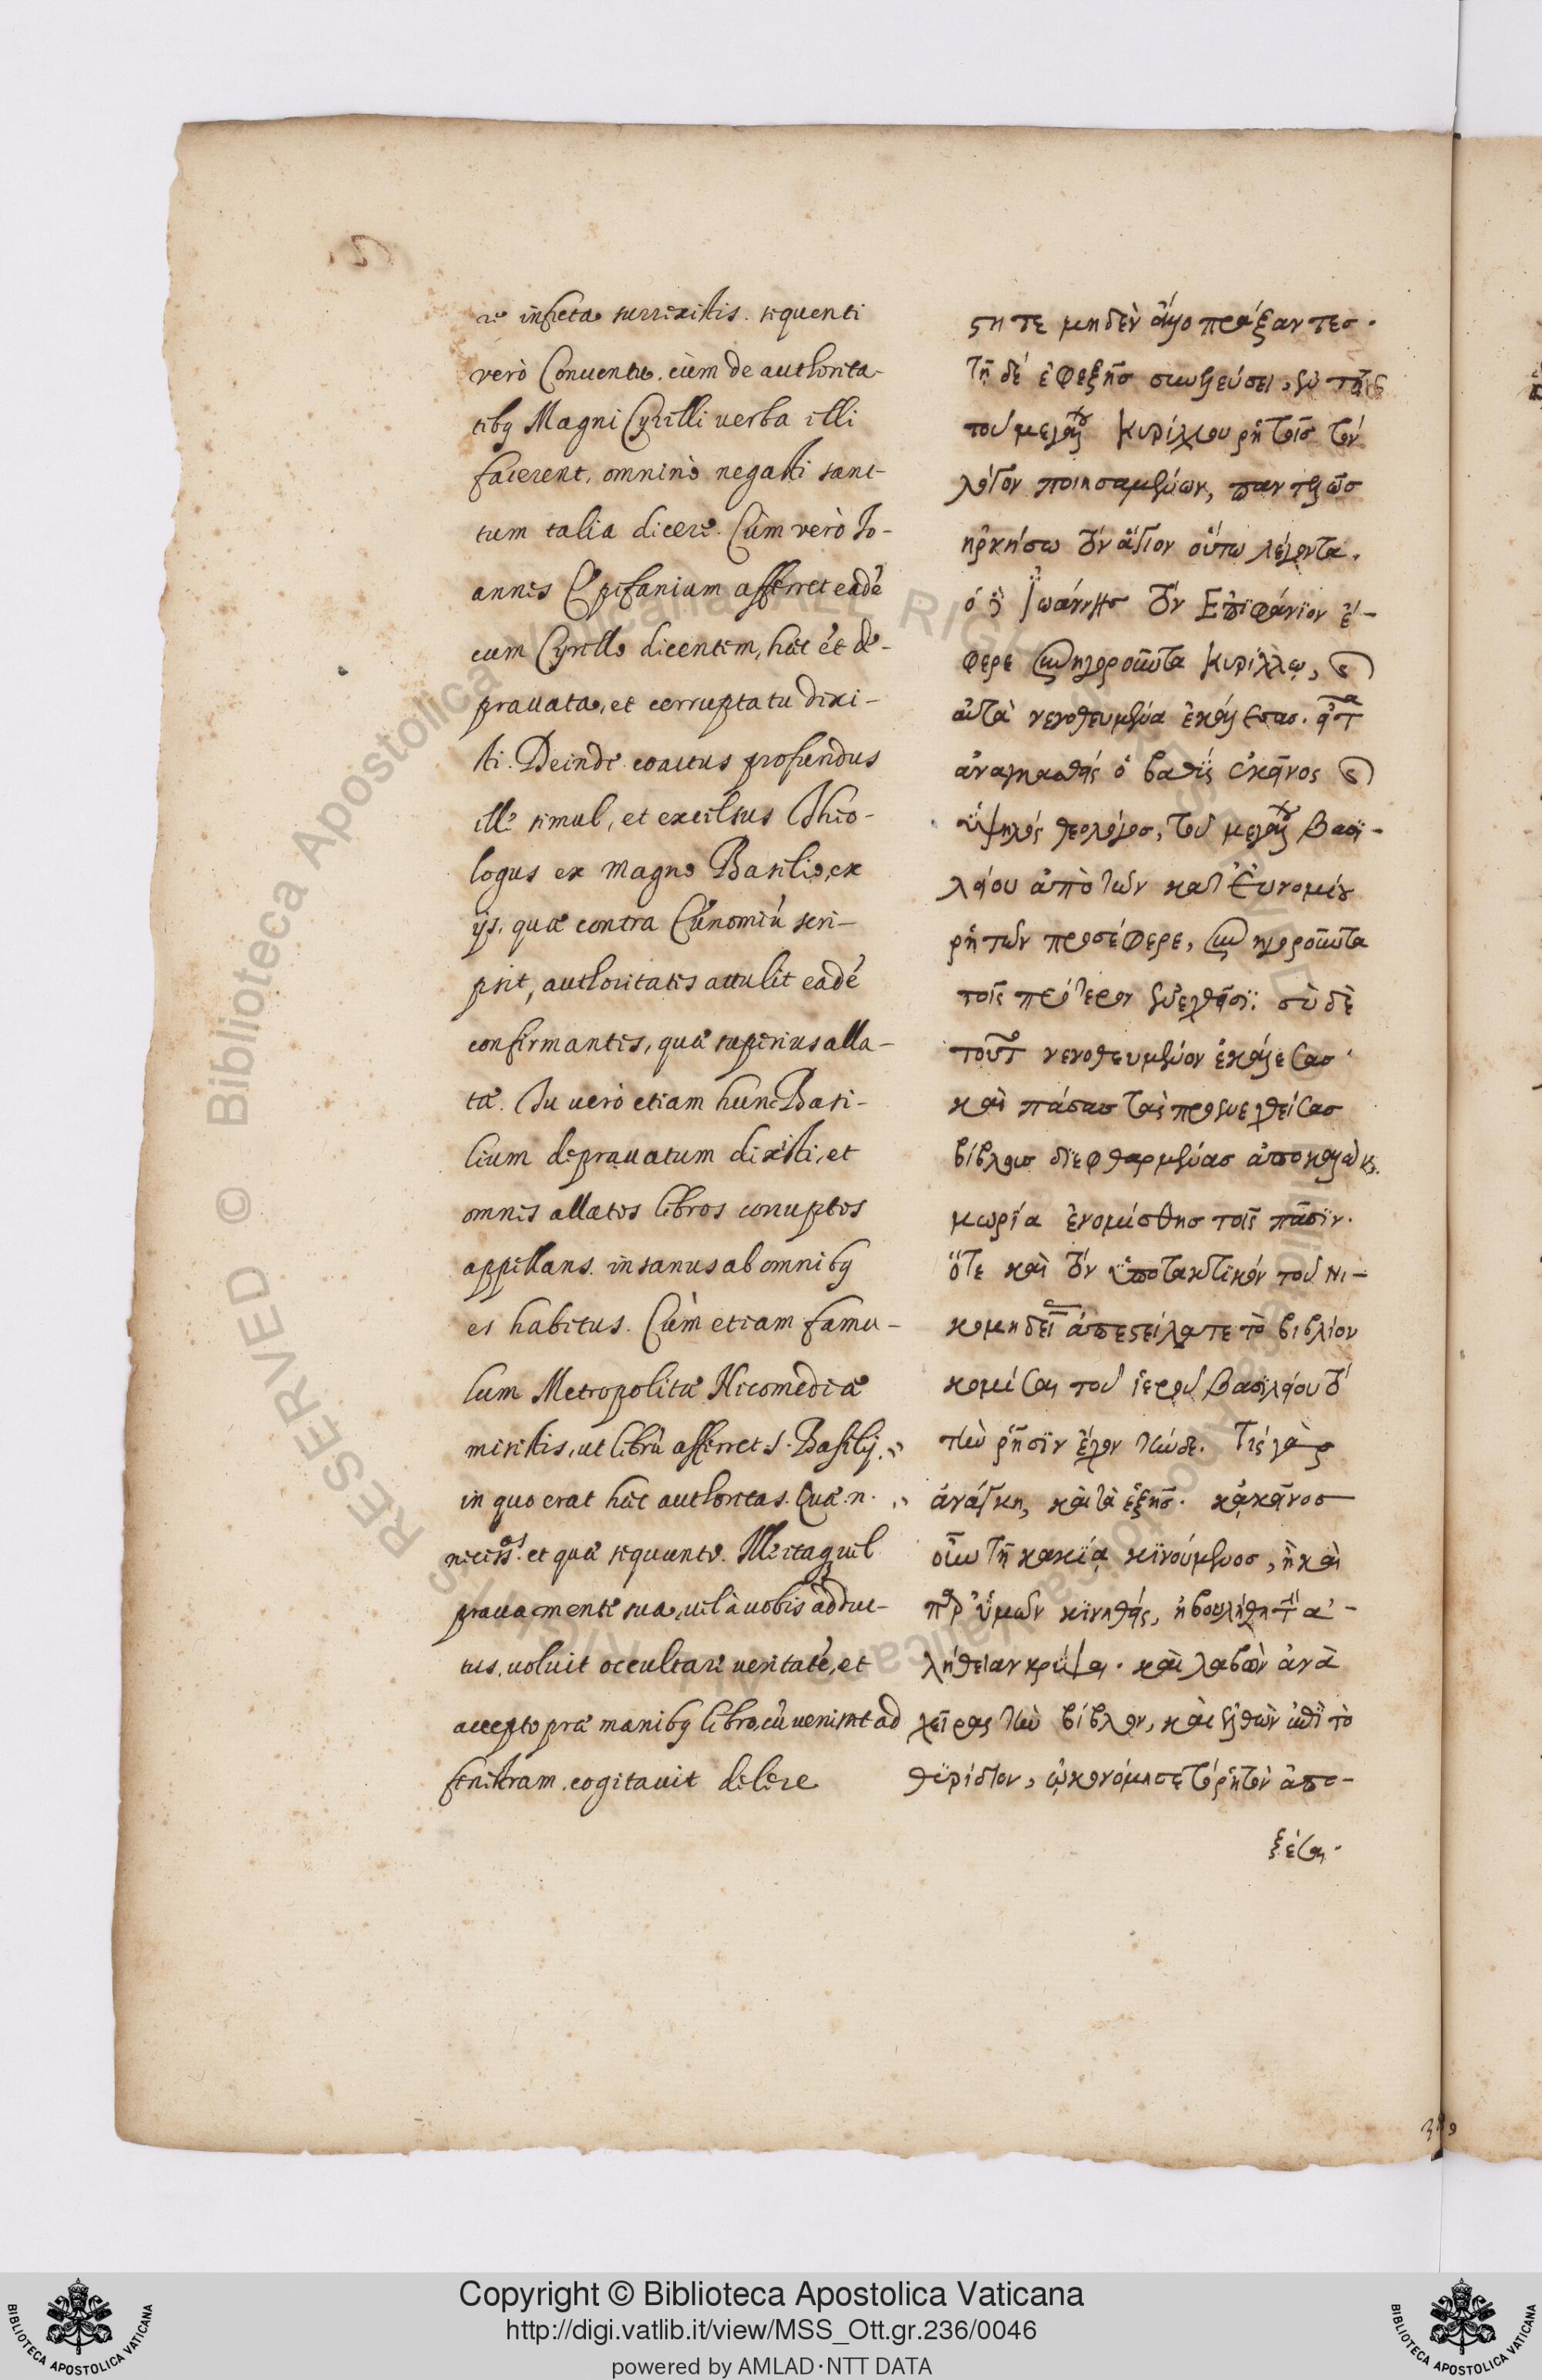 re infecta surrexistis. sequenti
verò Conventu. cùm de authorita-
tibꝫ Magni Cyrilli verba illi
facerent, omninò negasti sanc-
tum talia dicere. Cùm verò Jo-
annes Epifanium afferret eadé
cum Cyrillo dicentem, hæc et de-
pravata, et corrupta tu dixi-
sti. Deinde coactus profundus
ille simul, et excelsus Theo-
logus ex Magno Basilio, ex
ijs, quæ contra Eunomiú scri-
psit, authoritates attulit eadé
confirmantes, quæ superius alla-
tæ. Tu verò etiam hunc Basi-
lium depravatum dixisti, et
omnes allatos libros corruptos
appellans. insanus ab omnibꝫ
es habitus. Cùm etiam famu-
lum Metropolitæ Nicomediæ
misistis, ut librũ afferret S. Basilij.
in quo erat hæc authoritas. Quæ .n.
necess. et quæ sequuntr. Ille itaqꝫ vel
prava mente sua, vel à vobis adduc-
tus, voluit occultare veritaté, et
accepto præ manibꝫ libro, cù venisset ad
fenestram. cogitavit delere
στητε μηδὲν ἄλλο πράξαντες.
τῇ δέ ἐφεξῆς συνελεύσει, ἐν τοῖς
τοῦ μεγάλου Κυρίλλου ῥητοῖς τὸν
λόγον ποιησαμένων, παντελῶς
ἠρνήσω τὸν ἅγιον οὕτω λέγοντα.
ὁ δὲ Ἰωάννης τὸν Ἐπιφάνιον ἔ-
φερε συνηγοροῦντα Κυρίλλῳ, καὶ
αὐτὰ νενοθευμένα ἐκάλεσας. εἶτα
ἀναγκασθεὶς ὁ βαθὺς ἐκεῖνος καὶ
ὑψηλός θεολόγος, τοῦ μεγάλου Βασι-
λείου ἀπὸ τῶν κατ' Εὐνομίου
ῥητῶν προσέφερε, συνηγοροῦντα
τοῖς πρότερον ἐξελθοῦσι· σὺ δὲ
τοῦτο νενοθευμένον ἐκάλεσας·
καὶ πάσας τὰς προενεχθείσας
βίβλους διεφθαρμένας ἀποκαλῶν.
μωρία ἐνομίσθης τοῖς πᾶσιν.
ὅτε καὶ τὸν ὑποτακτικόν τοῦ Νι-
κομηδείας ἀπεστείλατε τὸ βιβλίον
κομίσαι τοῦ ἱεροῦ Βασιλείου τὸ
τὴν ῥῆσιν ἔχον τήνδε. Τίς γὰρ
ἀνάγκη, καὶ τὰ ἑξῆς. κἀκεῖνος
οὖν τῇ κακίᾳ κινούμενος, ἢ καὶ
παρ' ὑμῶν κινηθείς, ἠβουλήθη τὴν ἀ-
λήθειαν κρύψαι. καὶ λαβὼν ἀνὰ
χεῖρας τὴν βίβλον, καὶ ἐλθὼν ἐπὶ τὸ
θυρίδιον, ᾠκονόμησε τὸ ῥητὸν ἀπο-
ξέσαι.
Copyright © Biblioteca Apostolica Vaticana
http://digi.vatlib.it/view/MSS_Ott.gr.236/0046
powered by AMLAD·NTT DATA